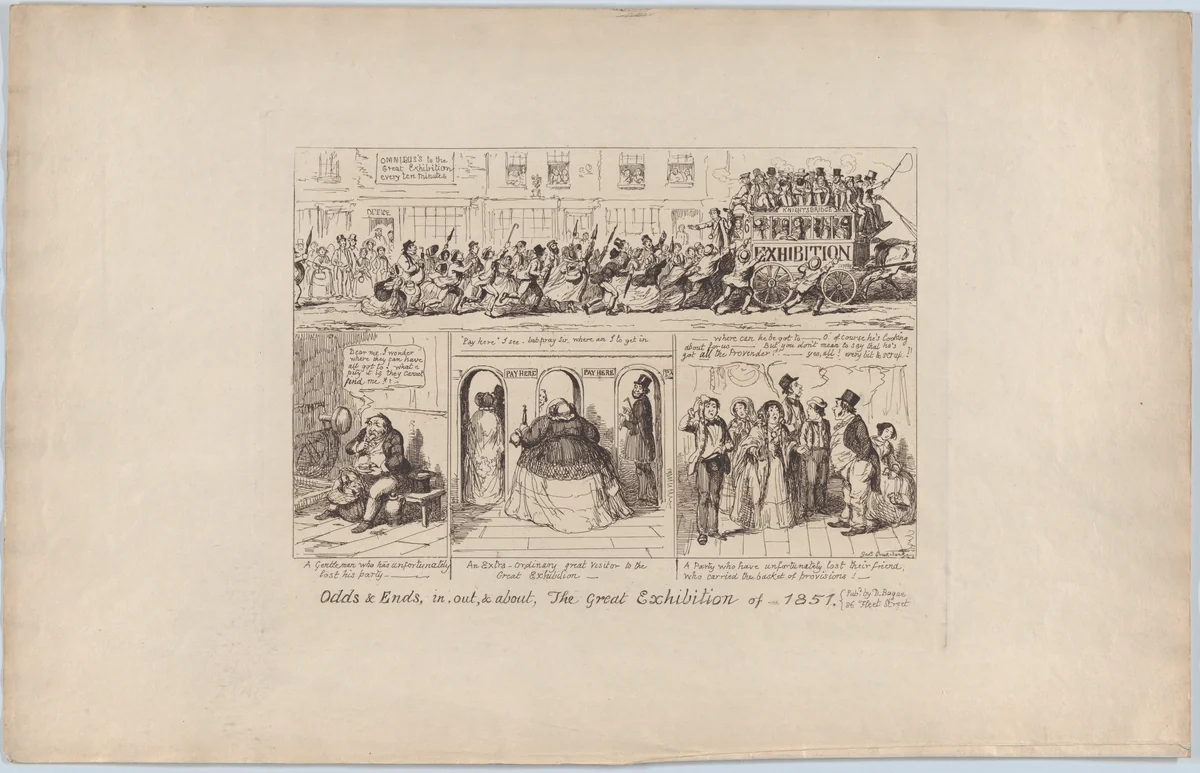 OMNIBUS'S to the
Great Exhibition
every ten minutes
OFFICE
KNIGHTSBRIDGE
EXHIBITION
Dear me, I wonder
where they can have
all got to! what a
pity it is they cannot
find me?!!—
"Pay here" I see - but pray Sir, where am I to get in
PAY HERE
PAY HERE
where can he be got to —— O' of course he's looking
about for us —— But, you don't mean to say that he's
got all the Provender?!! —— yes, all! every bit & scrap!!
A Gentleman who has unfortunately
lost his party.———
An Extra-Ordinary great Visitor to the
Great Exhibition —
A Party who have unfortunately lost their friend,
who carried the basket of provisions!—
Odds & Ends, in, out, & about, The Great Exhibition of - 1851.
Pubd. by D. Bogue
86 Fleet Street